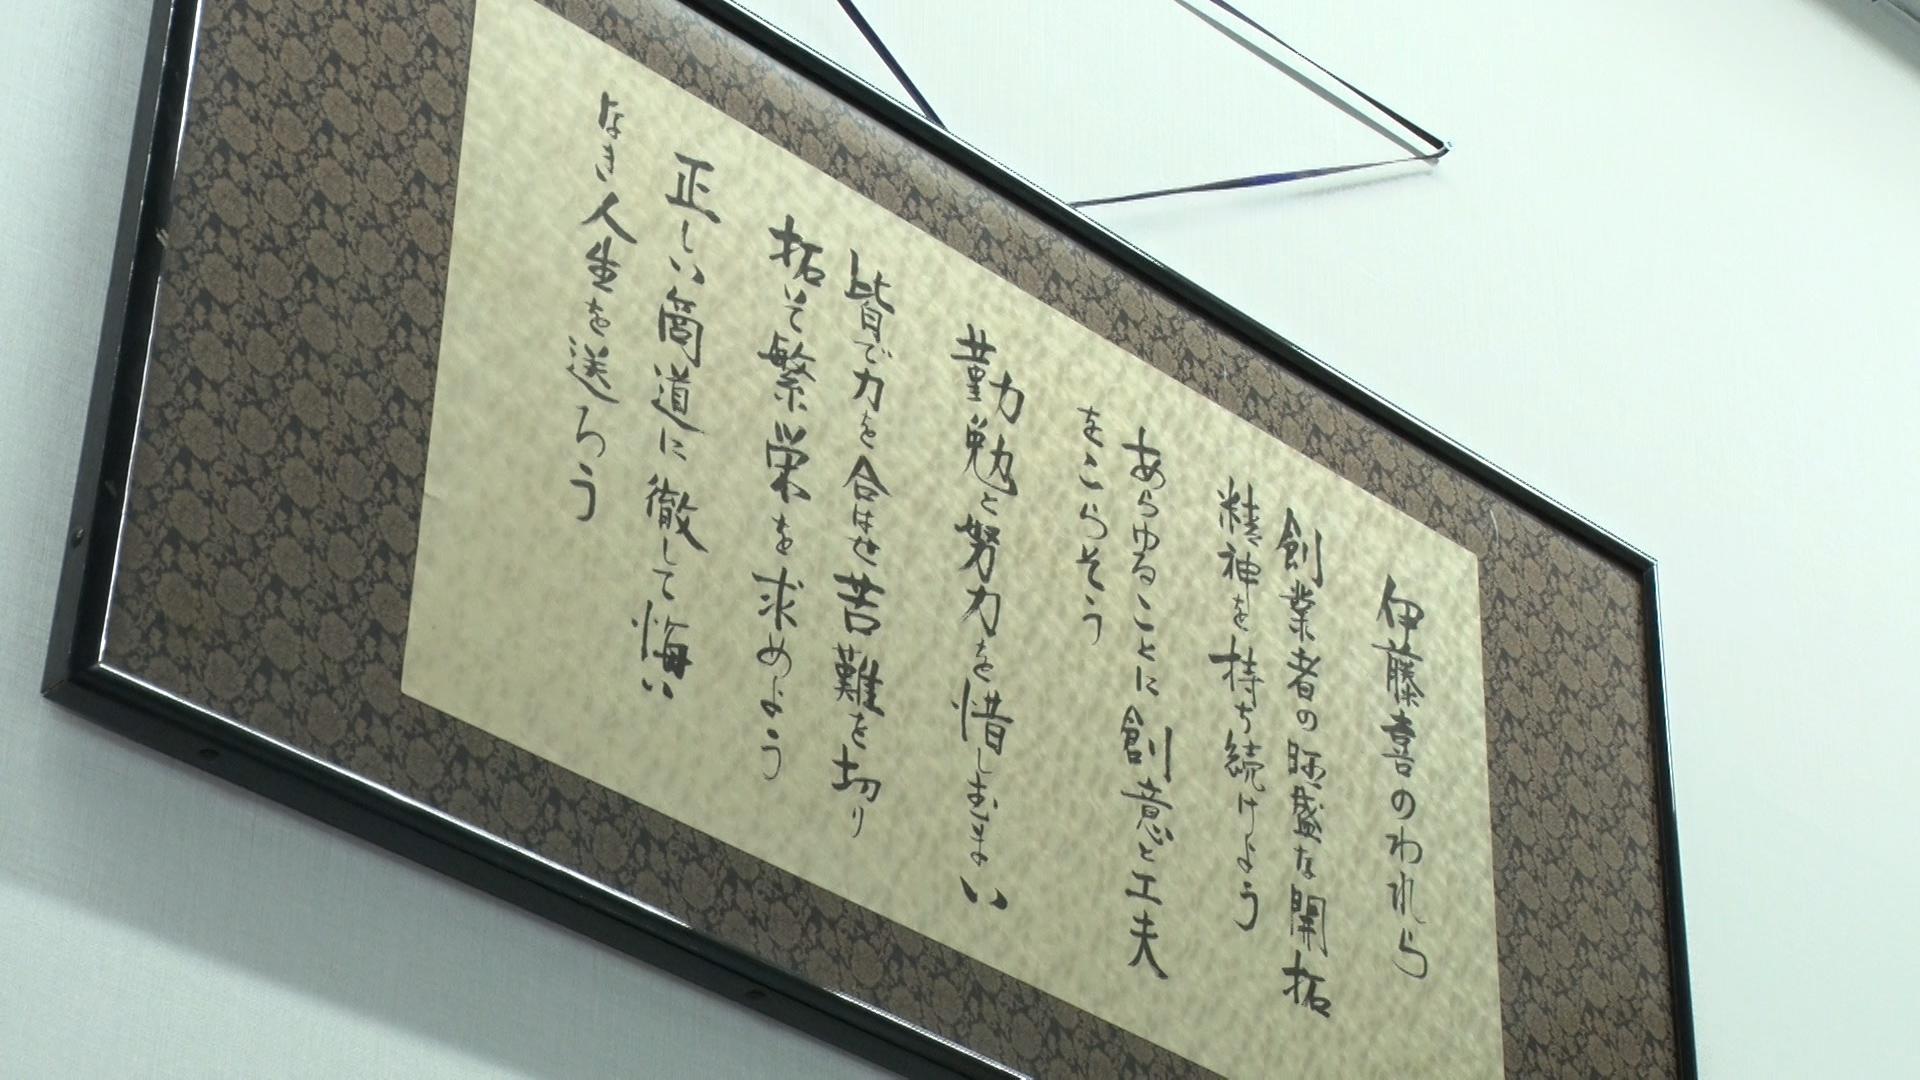 伊藤喜のわれら
創業者の旺盛な開拓
精神を持ち続けよう
あらゆることに創意と工夫
をこらそう
勤勉と努力を惜しむまい
皆で力を合はせ苦難を切り
拓いて繁栄を求めよう
正しい筒道に徹して悔い
なき人生を送ろう